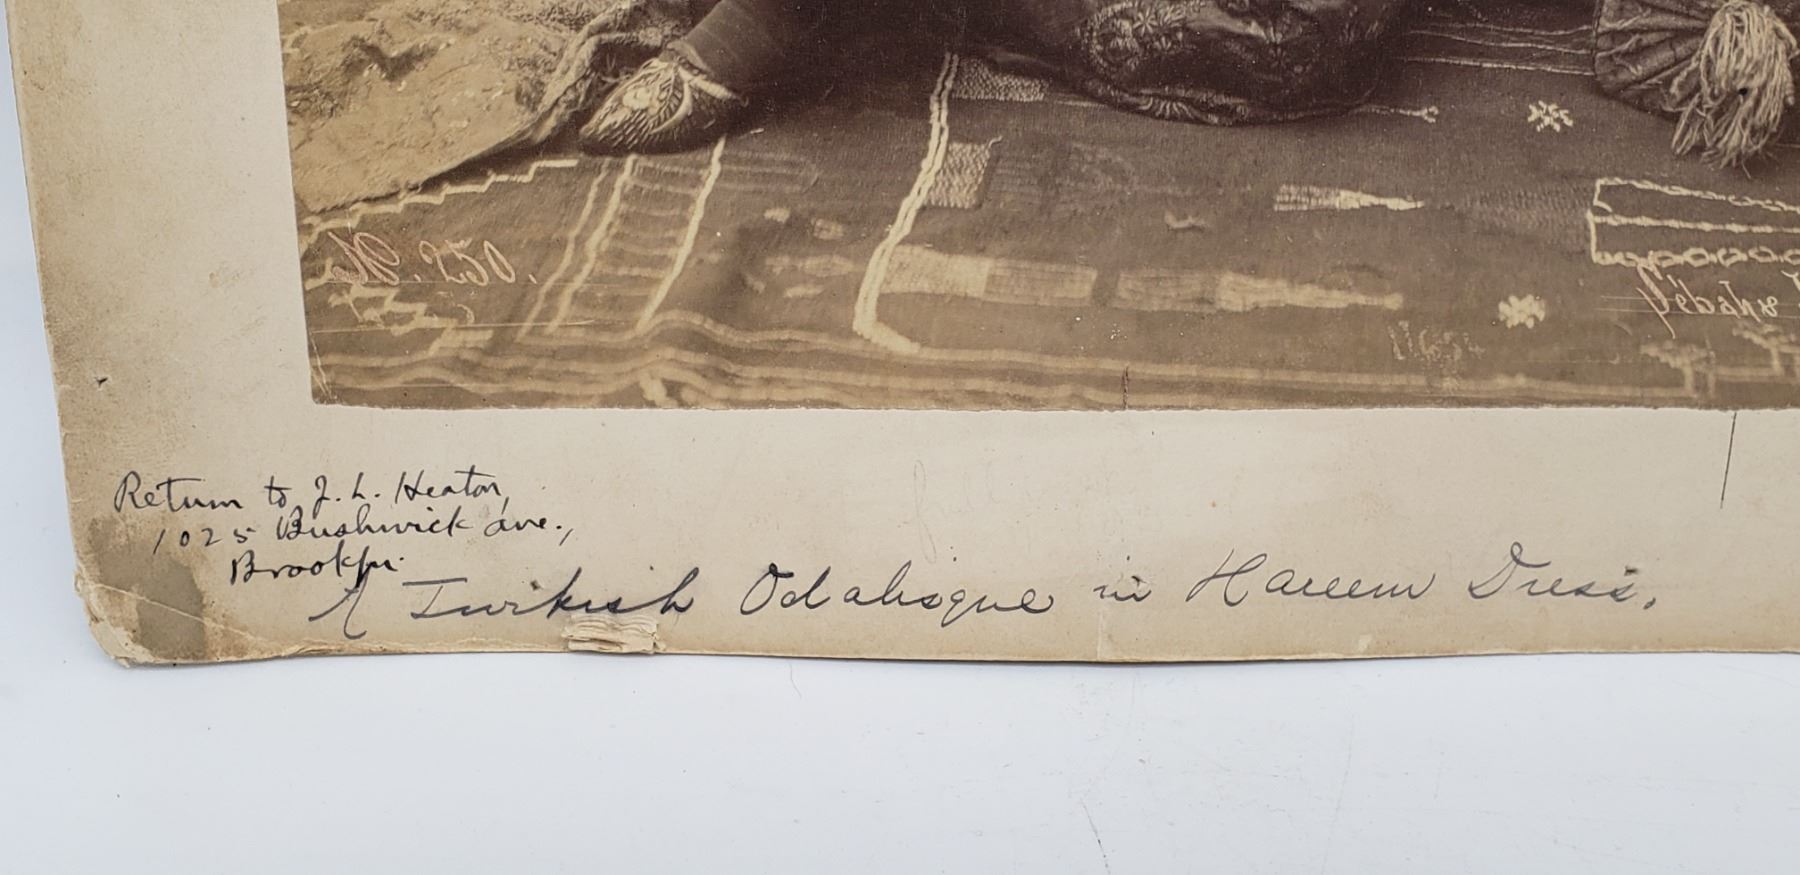 No. 250.
Return to J. L. Heaton,
1025 Bushwick ave.,
Brooklyn.
A Turkish Odalisque in Hareem Dress.